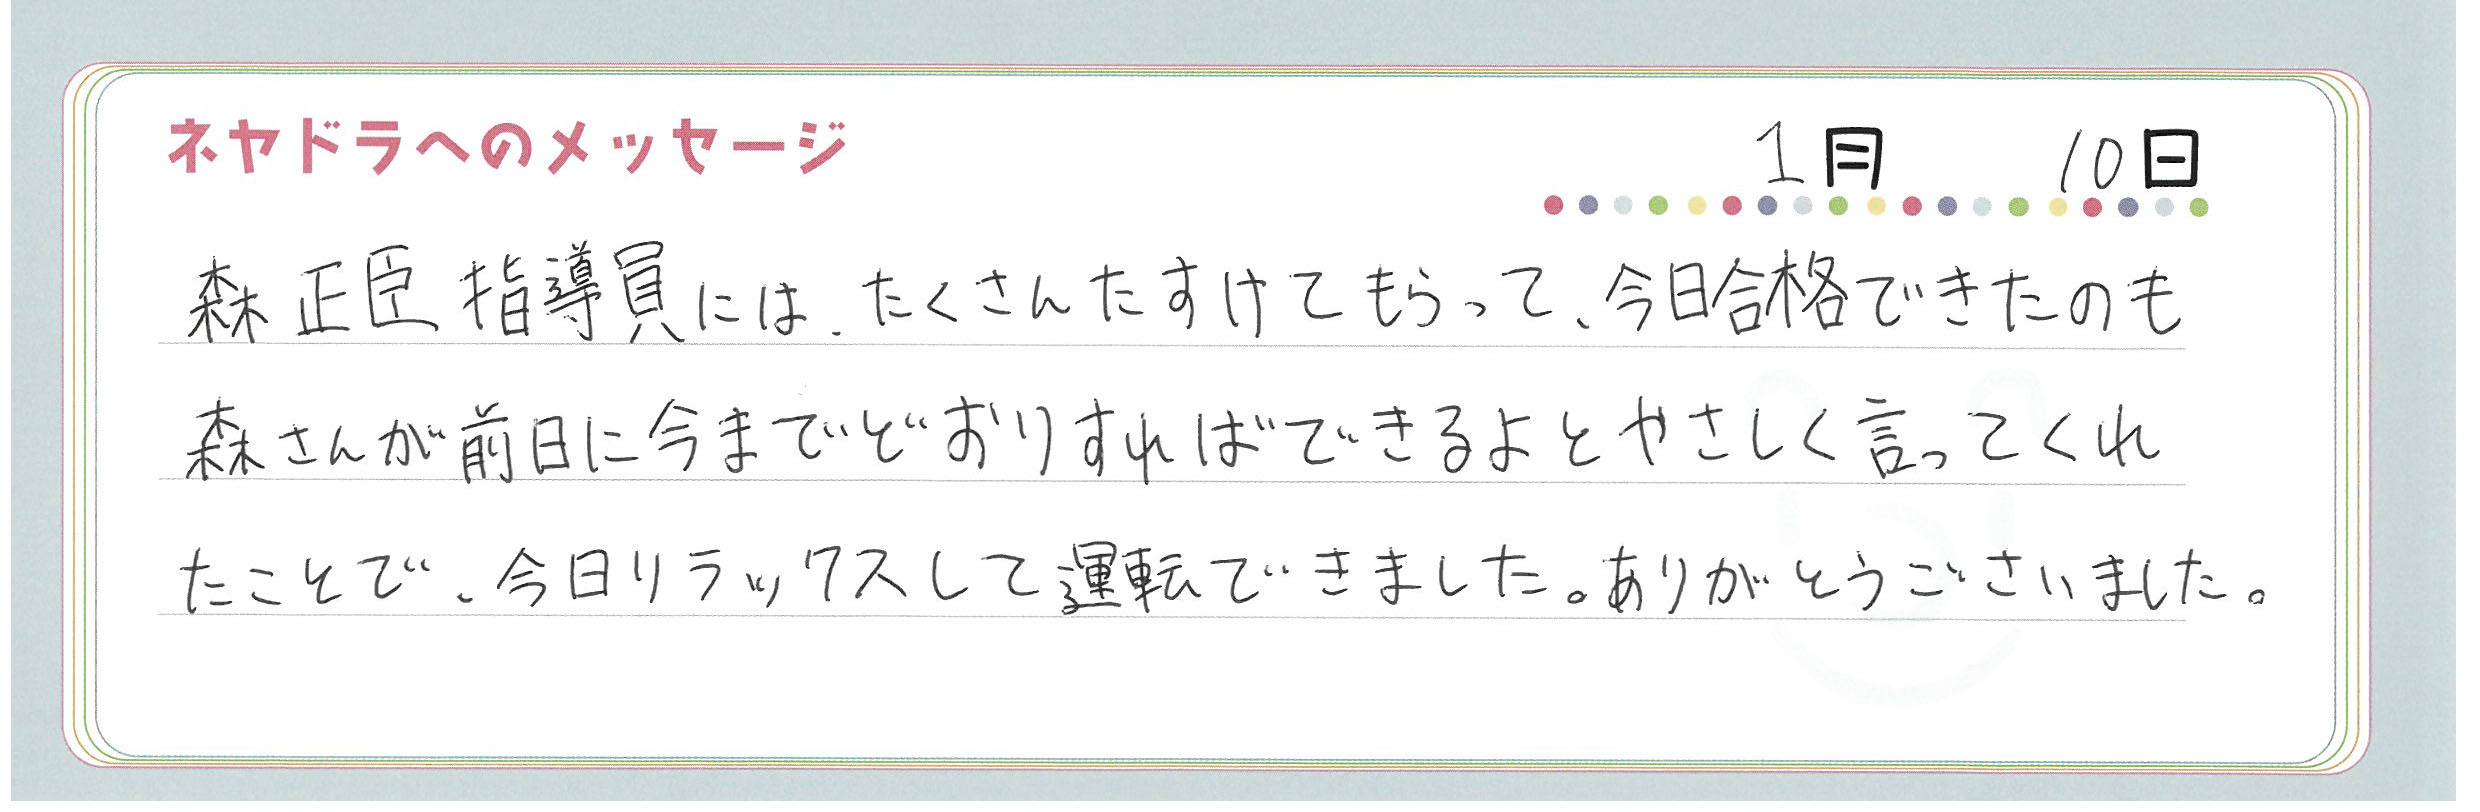 ネヤドラへのメッセージ
1月 10日
森正臣指導員には、たくさんたすけてもらって、今日合格できたのも
森さんが前日に今までどおりすればできるよとやさしく言ってくれ
たことで、今日リラックスして運転できました。ありがとうございました。